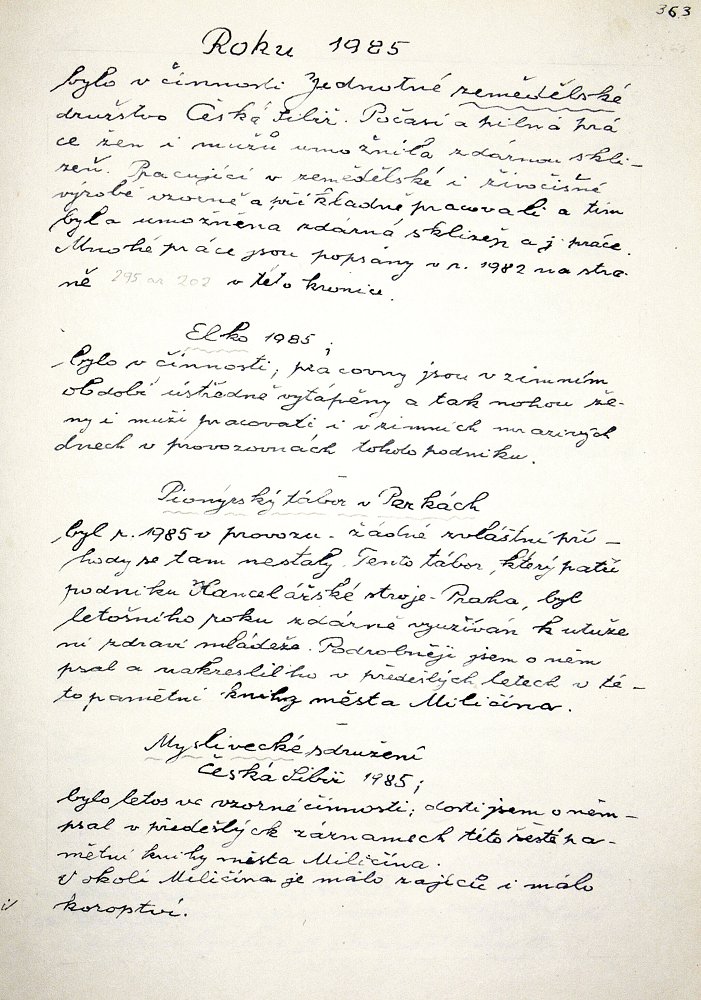 363
Roku 1985
bylo v činnosti Jednotné zemědělské
družstvo Česká Sibiř. Počasí a pilná prá
ce žen i mužů umožnila zdárnou skli-
zeň. Pracující v zemědělské i živočišné
výrobě vzorně a příkladně pracovali a tím
byla umožněna zdárná sklizeň a j. práce.
Mnohé práce jsou popsány v r. 1982 na stra-
ně 295 202 v této kronice.
Elko 1985;
bylo v činnosti; pracovny jsou v zimním
období ústředně vytápěny a tak mohou že-
ny i muži pracovati i v zimních mrazivých
dnech v provozovnách tohoto podniku.
Pionýrský tábor v Perkách
byl r. 1985 v provozu. žádné zvláštní pří-
hody se tam nestaly. Tento tábor, který patří
podniku Kancelářské stroje - Praha, byl
letošního roku zdárně využíván k utuže
ní zdraví mládeže. Podrobněji jsem o něm
psal a nakreslil ho v předešlých letech v té-
to pamětní knihy města Miličína.
Myslivecké sdružení
Česká Sibiř 1985;
bylo letos ve vzorné činnosti; dosti jsem o něm-
psal v předešlých záznamech této šesté pa-
mětní knihy města Miličína.
V okolí Miličína je málo zajíců i málo
koroptví.